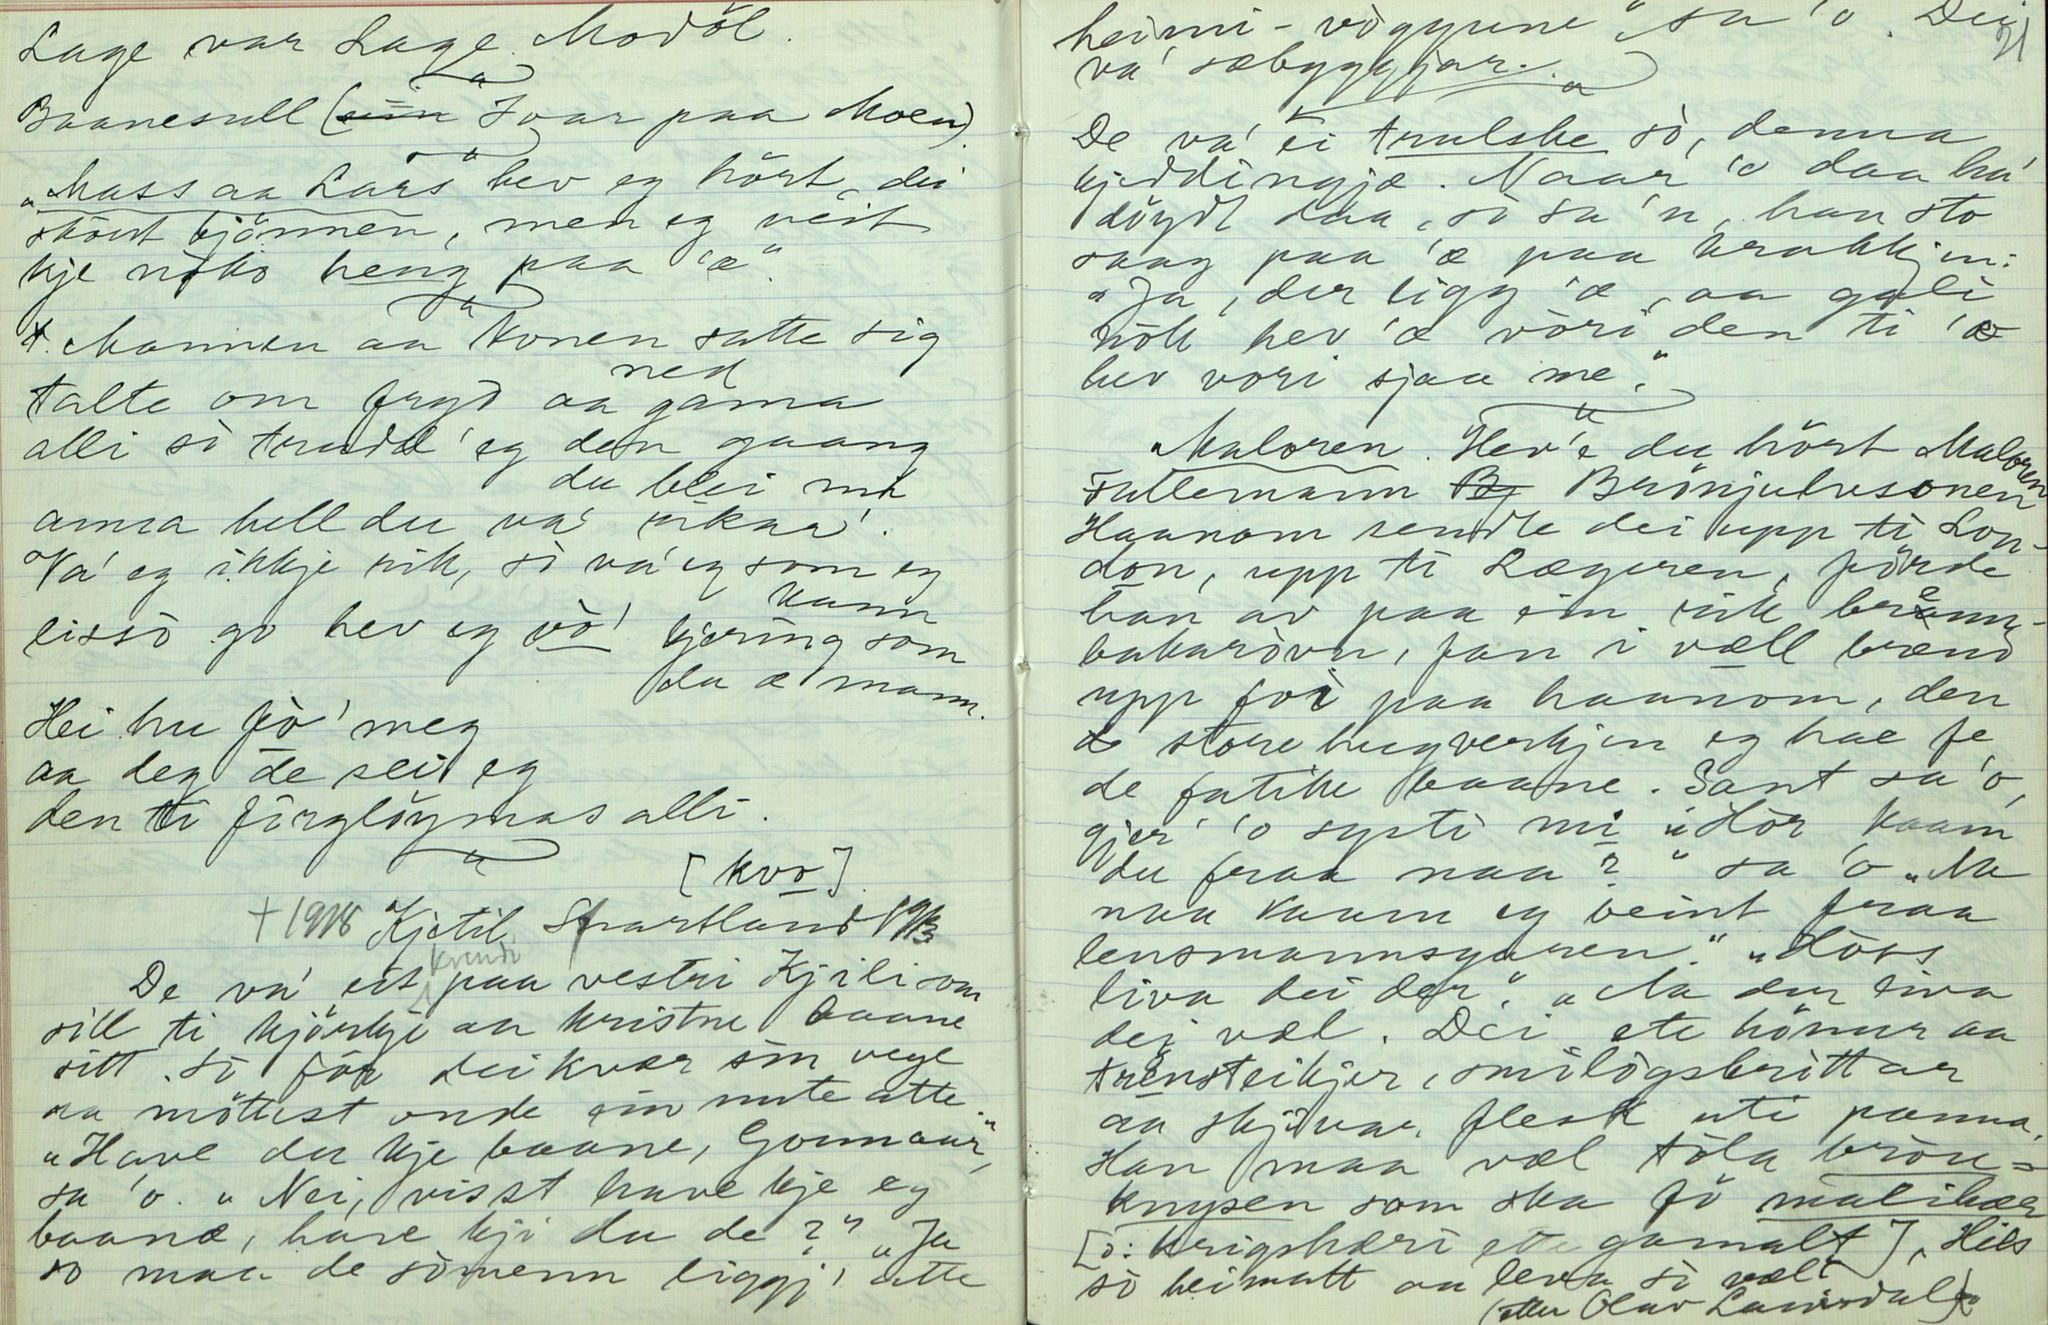 Lage var Lage Modøl.
Baanesull (Ivar paa Moen).
"Mass aa Lars hev eg hört, dei
skout bjönnen, men eg veit
kje nòko heng paa 'æ".
Mannen aa Konen satte sig
ned
talte om fryd aa gama
alli sò trudd' eg den gaang
du blei mi
anna hell du va' rikaa'.
Va' eg ikkje rik, sò va' eg som eg
kann
lissò go hev eg vò' kjering som
du æ mann.
Hei hu fò' meg
aa deg de sei eg
den ti förglöymas alli.
[kvo]
† 1918 Kjetil Svartland 1913
kvendi
De va' eit paa vestri Kjili som
sill ti kjörkje aa kristne baane
sitt. Sò fór dei kvær sin vege
aa möttest onde ein nute atte.
"Have du kje baane, Gonnaar",
sa 'o. "Nei, visst have kje eg
baane, have kji du de?" "Ja
so maa de sòmenn liggj' atte
heimi-vòggune" sa 'o. Dei
va' sæbyggjar.
De va' ei trulske sò, denna
kjeddingjæ. Naar 'o daa ha'
döydt daa, sò sa 'n, han sto
saag paa 'æ paa krakkjen:
"Ja, der ligg 'æ, aa gali
nök hev 'æ vòri den ti 'æ
hev vori sjaa me".
"Maloren. Hev'e du hört Maloren
Fullemann Brönjulvsonen
Haanom sendte dei upp ti Lon-
don, upp ti Lægeren, förde
han av paa ein rik brenn-
bakaròvn, fan i væll brænd
upp foi paa haanom, den
store hugverkjen eg hae fe
de fatike baane. Sant sa 'o,
gjer' 'o systi mi "Hór kaam
du fraa naa?" sa 'o "Na
naa kaam eg beint fraa
lensmannsgaren." "Hòss
liva dei der". "Na der liva
dei væl. Dei ete hönur aa
trensteikjer, smilògsbrittar
aa skjivar flesk uti panna.
Han maa væl tòla bròn=
knysen som ska fò malikær
[ɔ: krigskæri ete gamalt], Hels
sò heimatt aa leva sò væl"
(etter Olav Lauvsdal)